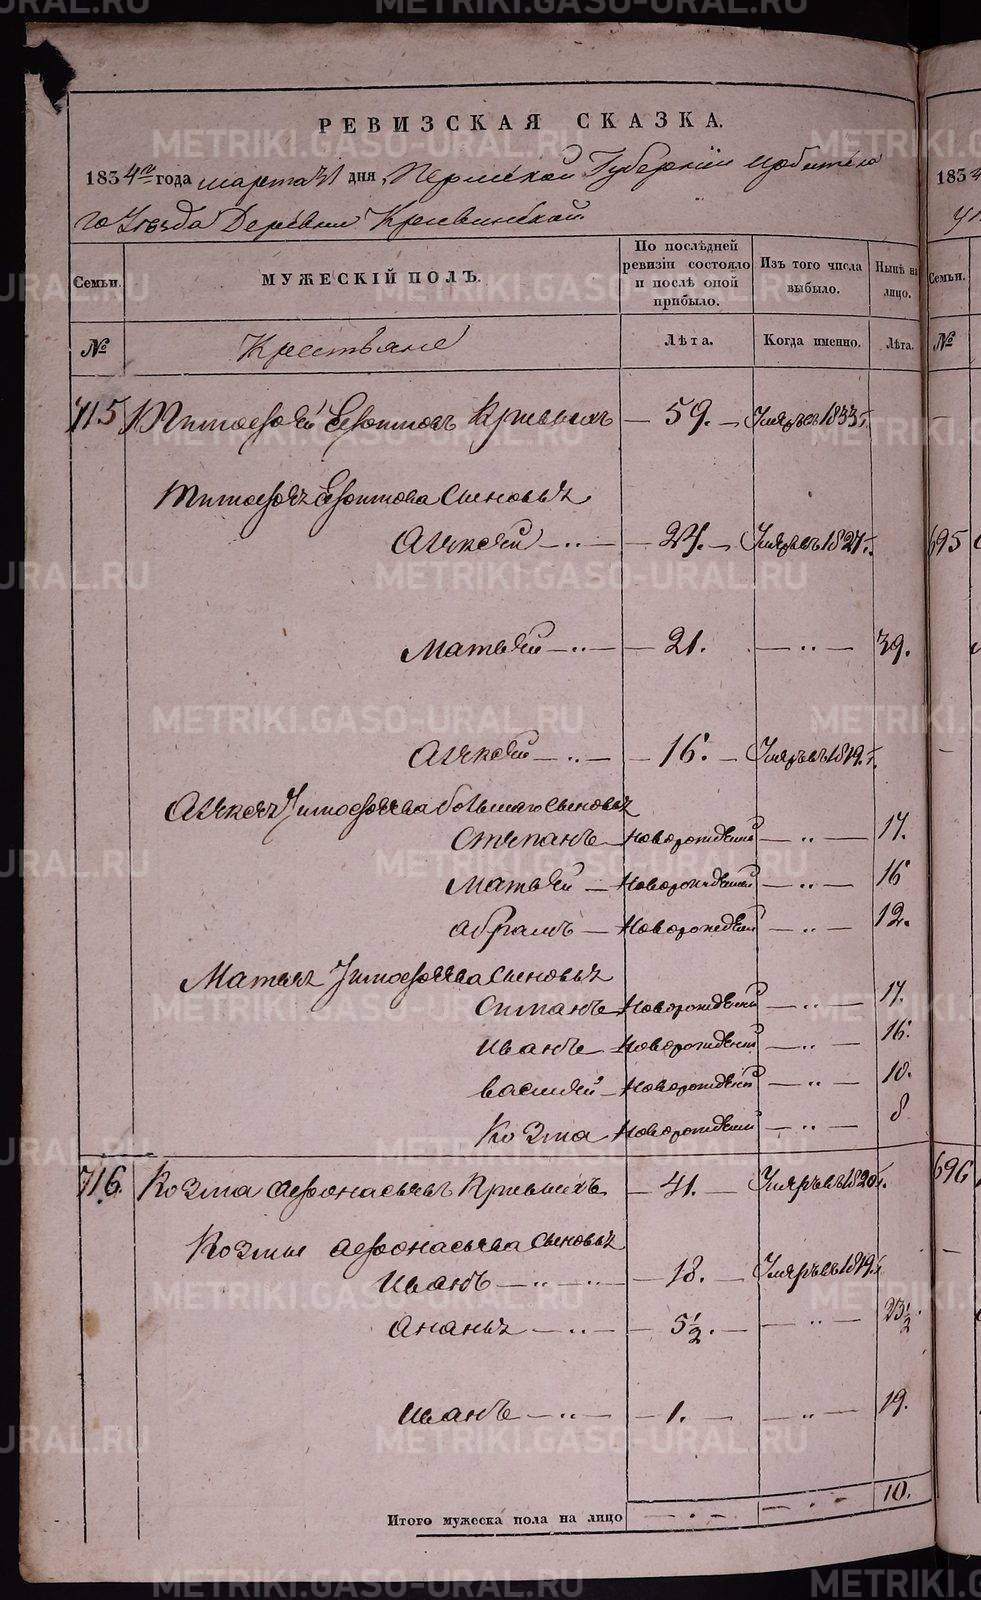 METRIKI.GASO-URAL.RU
РЕВИЗСКАЯ СКАЗКА.
1834го года марта 31 дня, Пермской Губернии Ирбитска
го Уезда Деревни Кривинской
Семьи.
МУЖЕСКІЙ ПОЛЪ.
По послѣдней ревизіи состояло и послѣ оной прибыло.
Изъ того числа выбыло.
Нынѣ на лицо.
№
Крестьяне
Лѣта.
Когда именно.
Лѣта.
715 Тимофей Кривыхъ — 59. — Умеръ въ 1833 г.
Тимофея сыновья
Алексей — 24. — Умеръ въ 1827 г.
Матвей — 21. — 39.
Алексей — 16. — Умеръ въ 1819 г.
Алексея Тимофеева большаго сыновья
Степанъ — Новорожденый — 17.
Матвей — Новорожденый — 16
Абрамъ — Новорожденый — 12.
Матвея Тимофеева сыновья
Новорожденый — 17.
Иванъ — Новорожденый — 16.
Василей — Новорожденый — 10.
Козма Новорожденый — 8
716. Козма Афонасьевъ Кривыхъ — 41. — Умеръ въ 1820 г.
Козмы Афонасьева сыновья
Иванъ — 18. — Умеръ въ 1819 г.
Ананья — 5½. — 23½.
Иванъ — 1. — 19.
Итого мужеска пола на лицо 10.
183
Семьи.
№
695
696